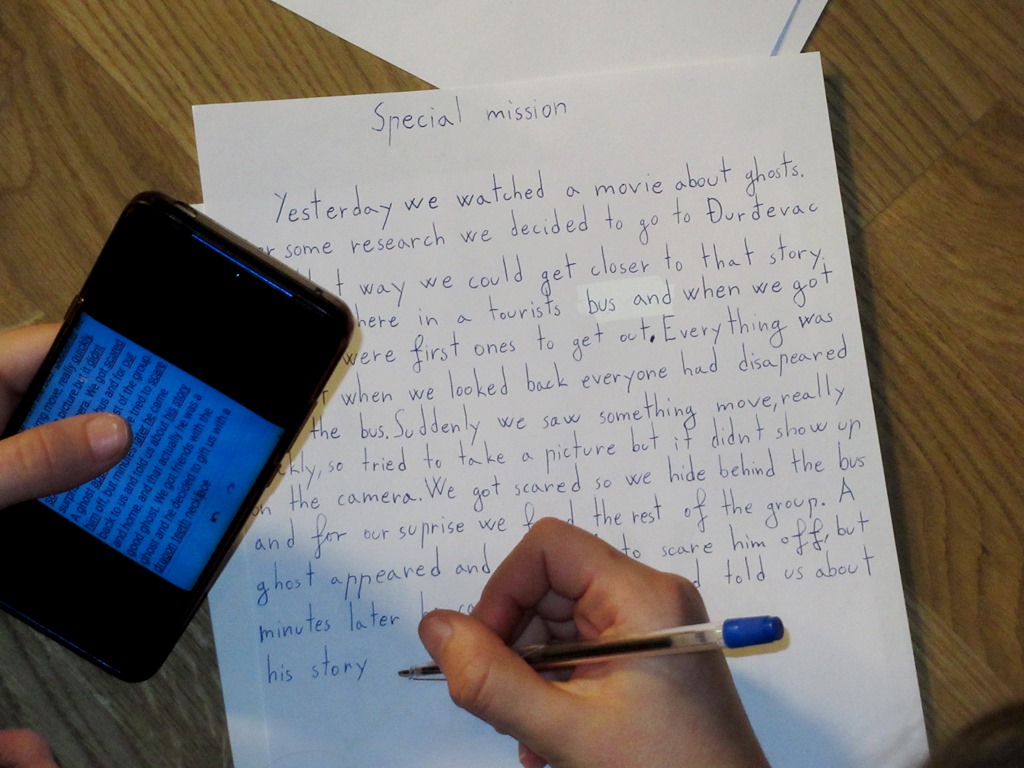 Special mission
Yesterday we watched a movie about ghosts.
some research we decided to go to Đurđevac
way we could get closer to that story.
here in a tourists bus and when we got
were first ones to get out. Everything was
when we looked back everyone had disapeared
the bus. Suddenly we saw something move, really
so tried to take a picture but it didn't show up
on the camera. We got scared so we hide behind the bus
and for our suprise we the rest of the group. A
ghost appeared and to scare him off, but
minutes later told us about
his story
move, really quickly
picture but it didn't
We got scared
bus and for our
rest of the group
A ghost we tried to scare
him off, but minutes later he came
back to us and told us about his story
and home, and that actually he was a
good ghost. We got friends with the
ghost and he decided to gift us with a
dragon teeth necklace